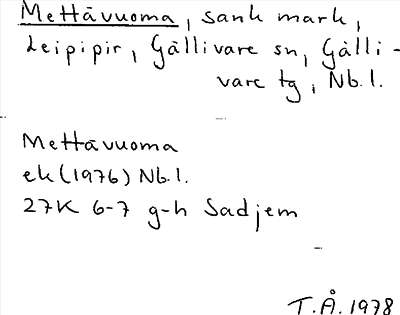 Mettävuoma, sank mark,
Leipipir, Gällivare sn, Gälli-
vare tg, Nb.l.
Mettävuoma
ek (1976) Nb.l.
27K 6-7 g-h Sadjem
T.Å. 1978